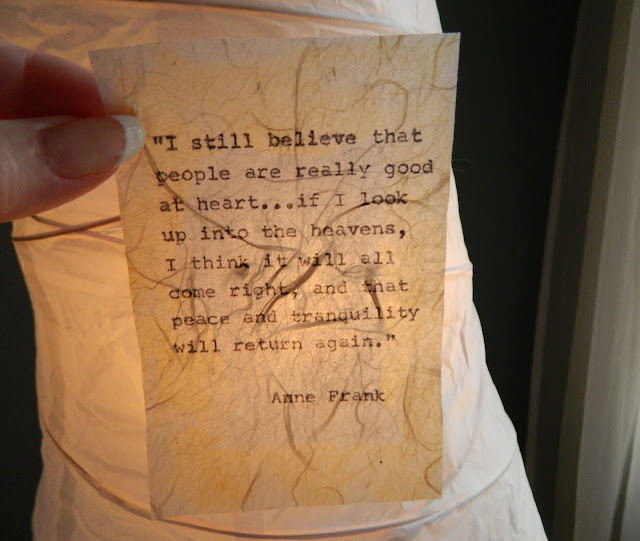 "I still believe that
people are really good
at heart...if I look
up into the heavens,
I think it will all
come right, and that
peace and tranquility
will return again."
Anne Frank